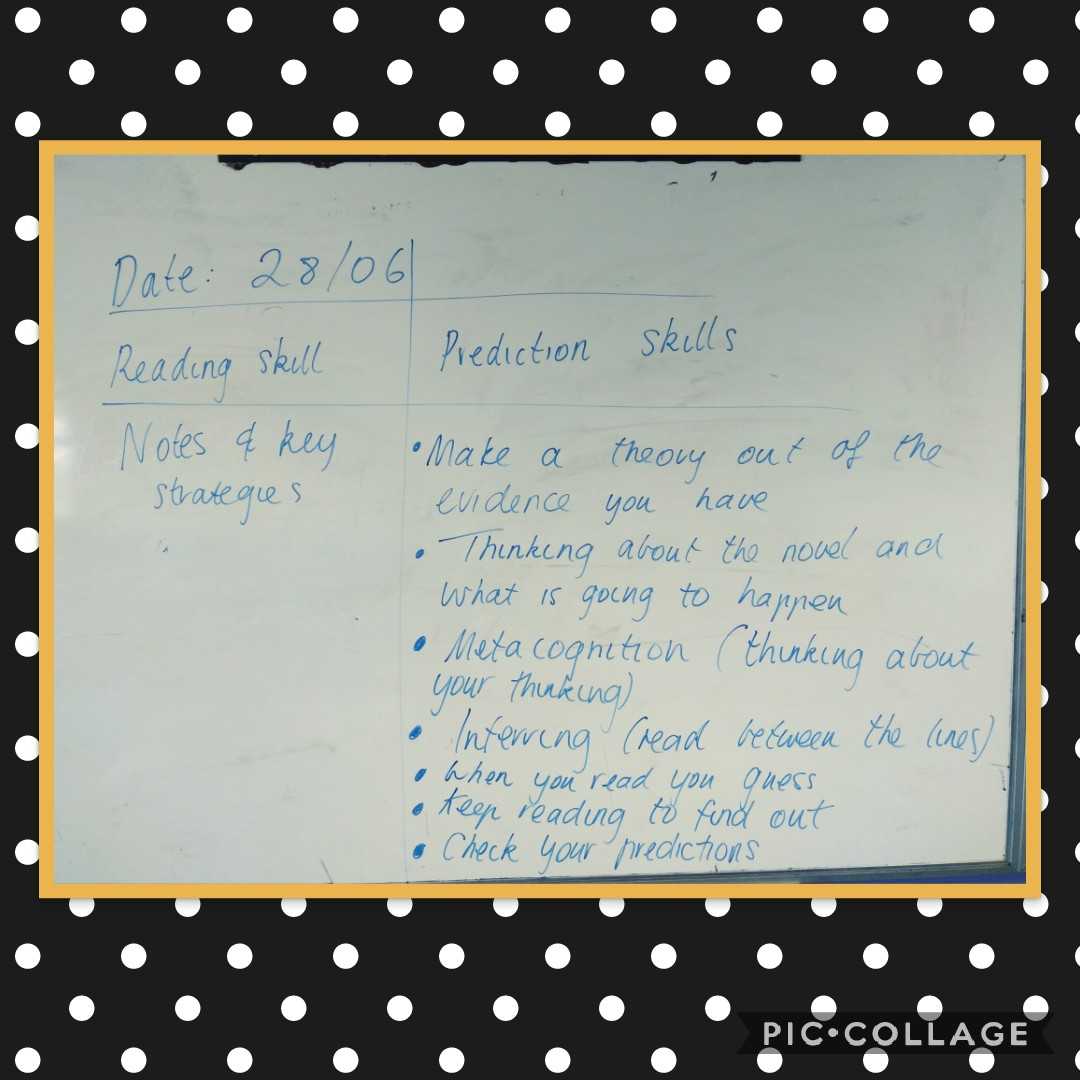 Date: 28/06
Reading skill
Prediction skills
Notes & key
strategies
• Make a theory out of the
evidence you have
• Thinking about the novel and
what is going to happen
• Metacognition (thinking about
your thinking)
• Inferring (read between the lines)
• When you read you guess
• Keep reading to find out
• Check your predictions
PIC•COLLAGE